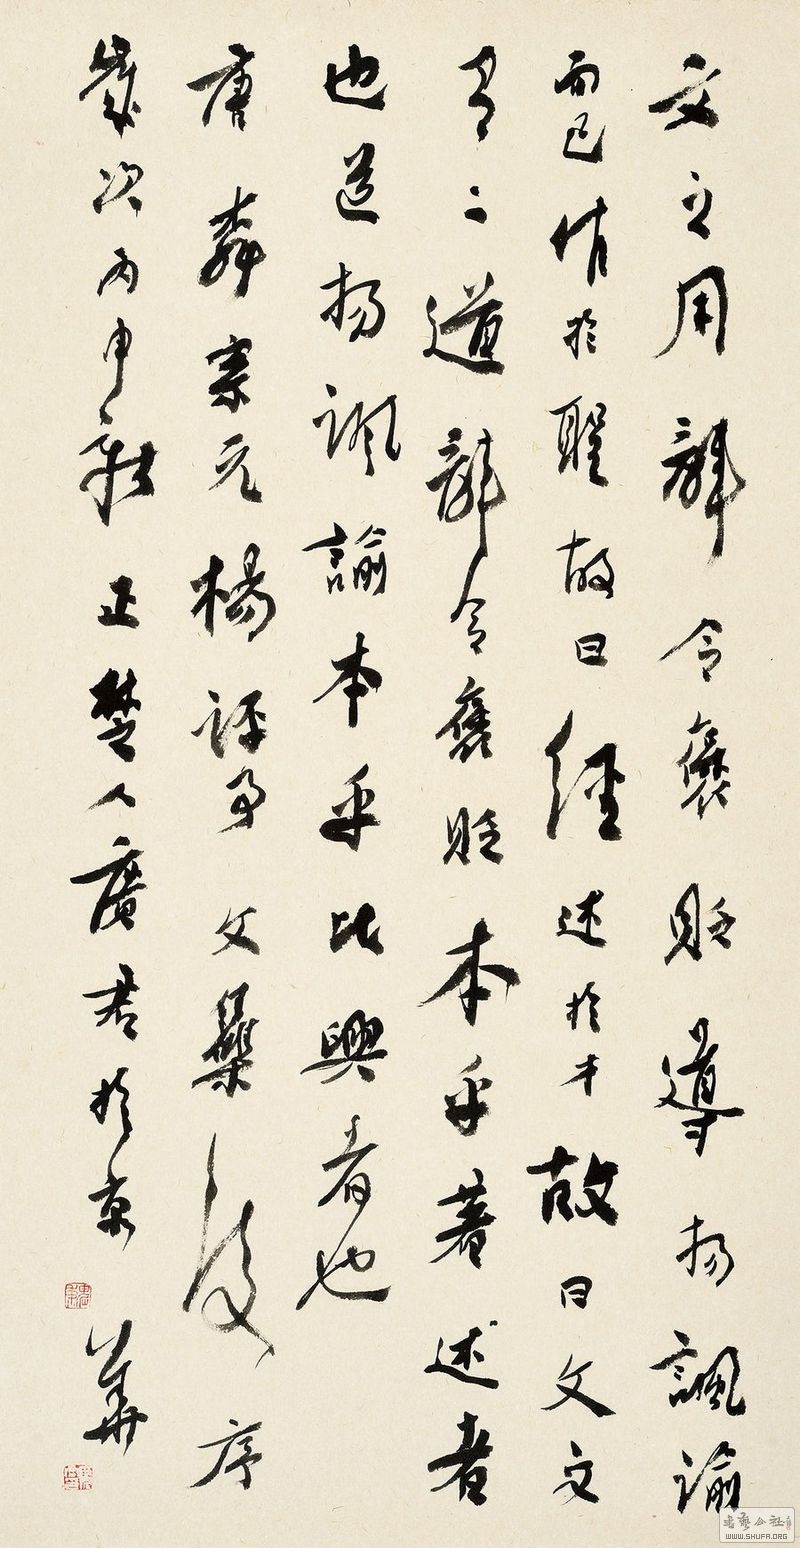 文之用辭令褒貶導揚諷諭
而已作於聖故曰經述於才故曰文文
有二道辭令褒貶本乎著述者
也導揚諷諭本乎比興者也
唐柳宗元楊評事文集後序
歲次丙申新正楚人廣君於京華
書藝公社
WWW.SHUFA.ORG